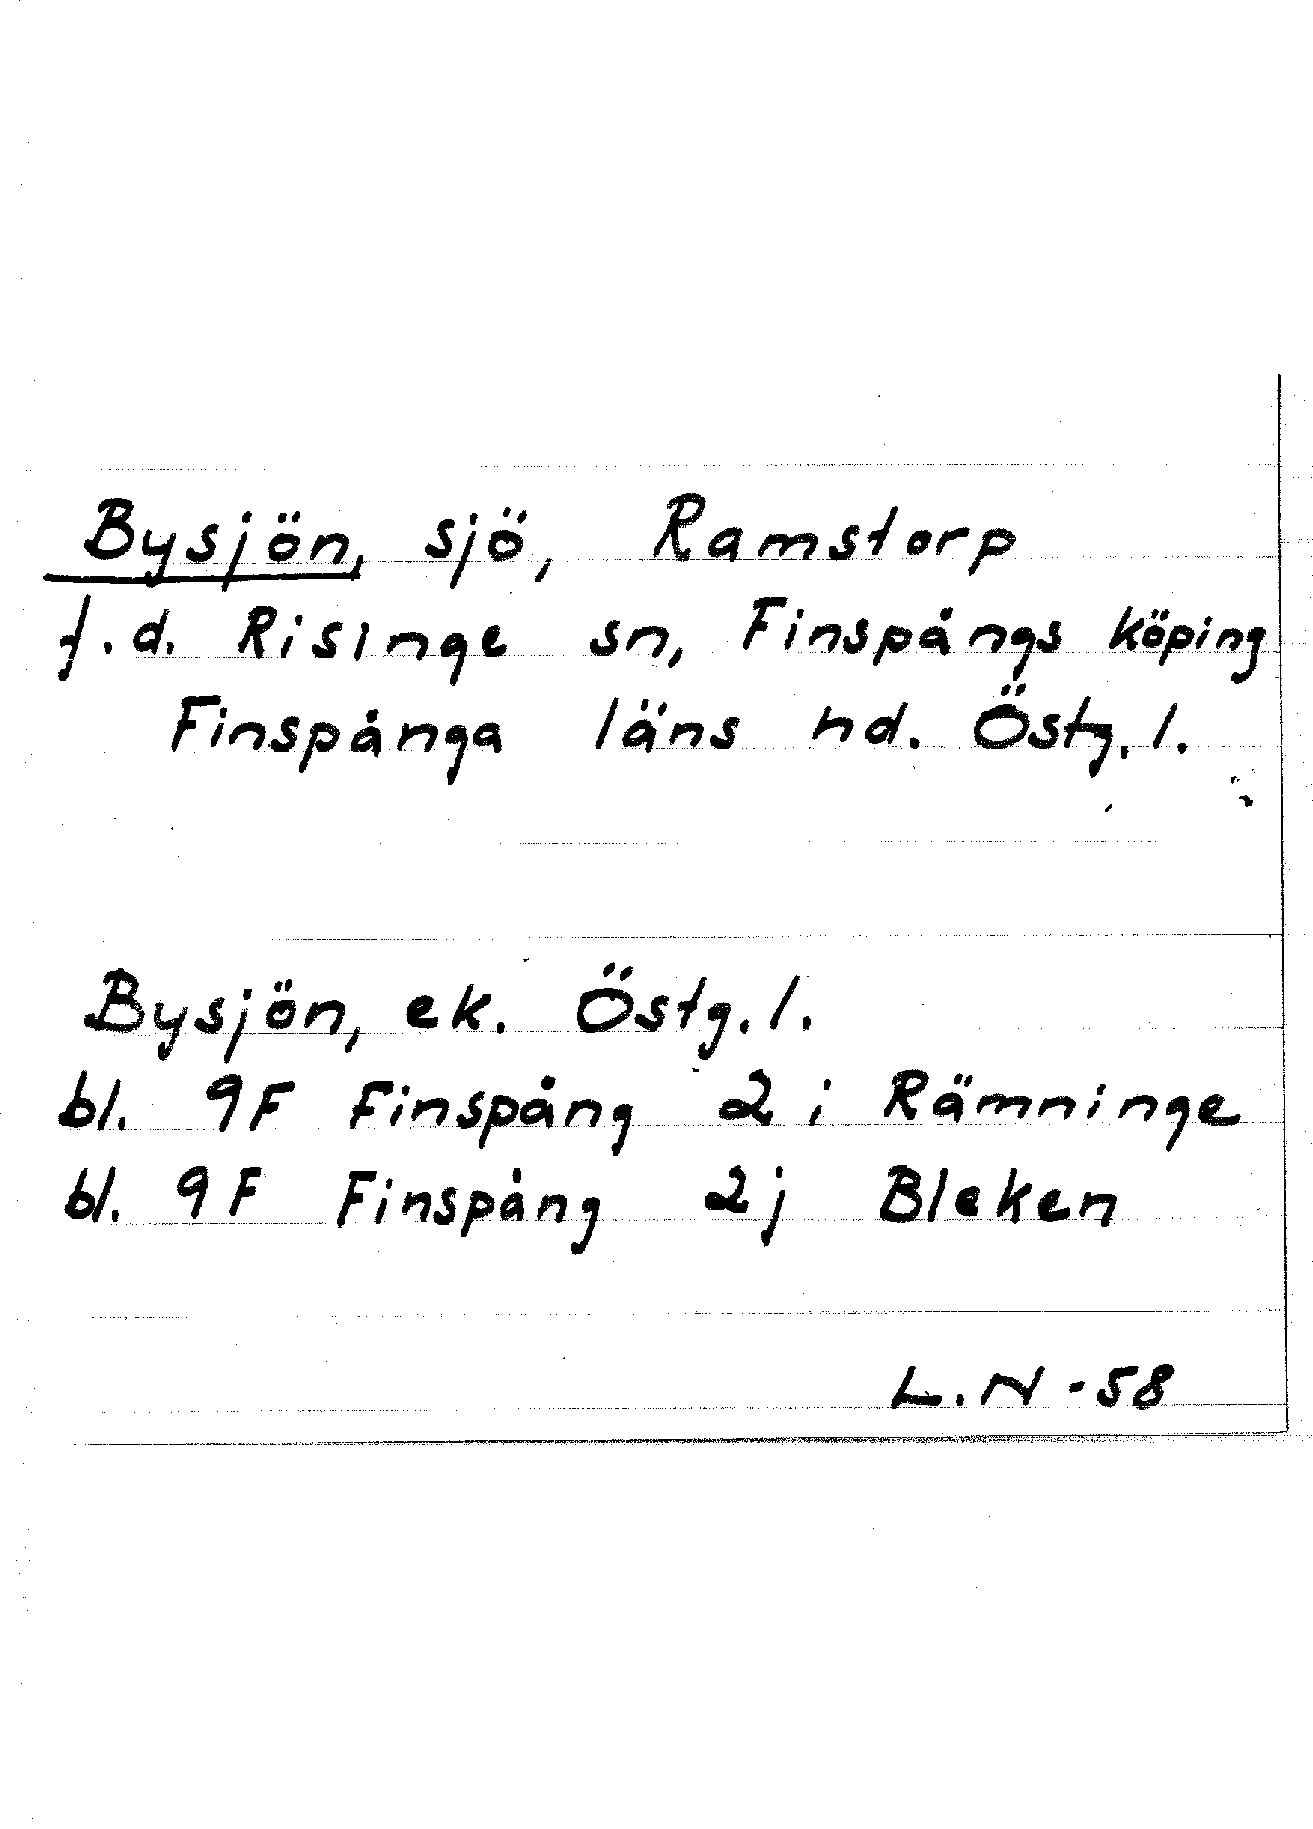 Bysjön, sjö, Ramstorp
f.d. Risinge sn, Finspångs köping
Finspånga läns hd. Östg. l.
Bysjön, ek. Östg. l.
bl. 9F Finspång 2 i Rämninge
bl. 9F Finspång 2j Bleken
L.N -58